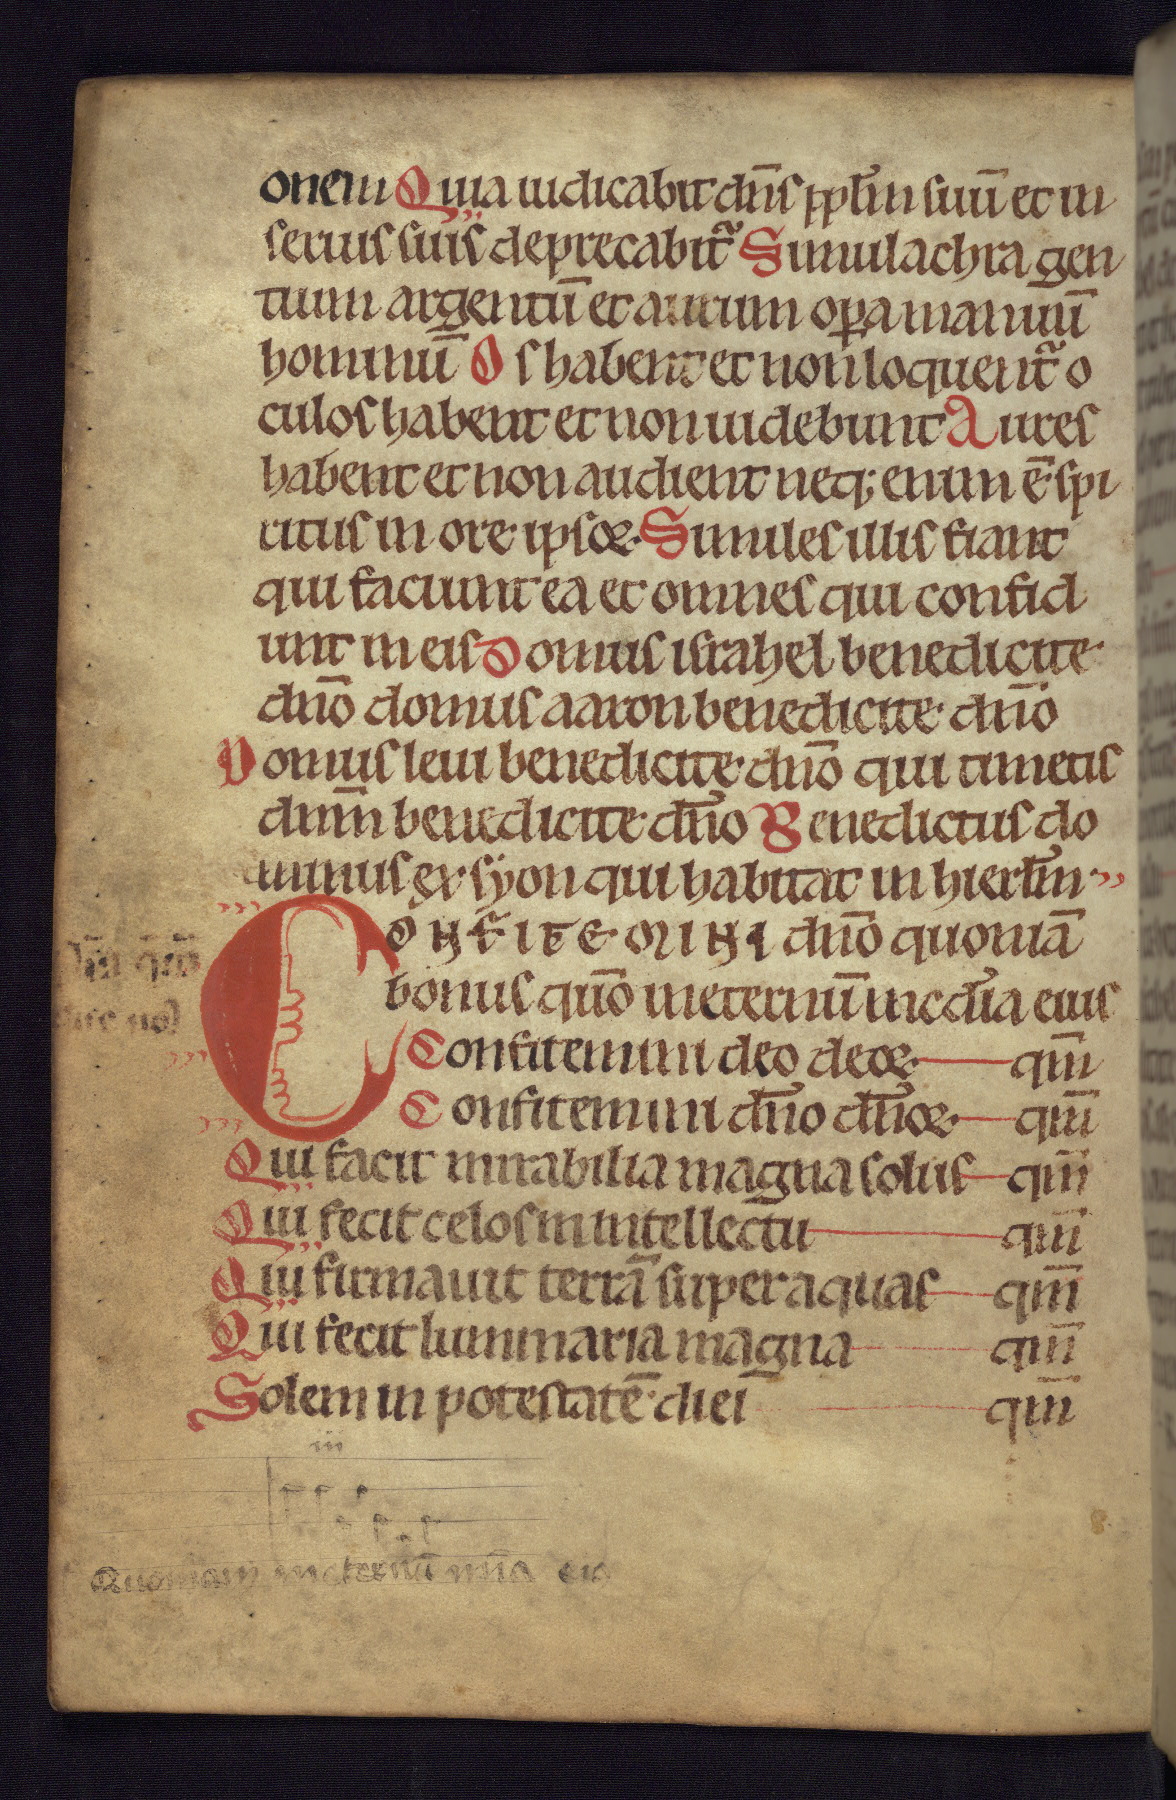 onem Quia iudicabit dn̄s ppl̄m suū et in
seruis suis deprecabit᷑ Simulachra gen
tium argentū et aurum oꝑa manuū
hominū Os habent et non loquent᷑ o
culos habent et non uidebunt Aures
habent et non audient neq; enim ē spi
ritus in ore ipsoꝝ Similes illis fiant
qui faciunt ea et omnes qui confid
unt in eis Domus israhel benedicite
dn̄o domus aaron benedicite dn̄o
Domus leui benedicite dn̄o qui timetis
dnm̄ benedicite dn̄o Benedictus do
minus ex syon qui habitat in hierl̄m
CONFITEMINI dn̄o quoniā
bonus qūo in eternū mc̄dia eius
Confitemini deo deoꝝ qm̄
Confitemini dn̄o dn̄oꝝ qm̄
Qui facit mirabilia magna solus qm̄
Qui fecit celos in intellectu qm̄
Qui firmauit terrā super aquas qm̄
Qui fecit luminaria magna qm̄
Solem in potestatē diei qm̄
iii
Quoniam in eternū mīa eiꝰ